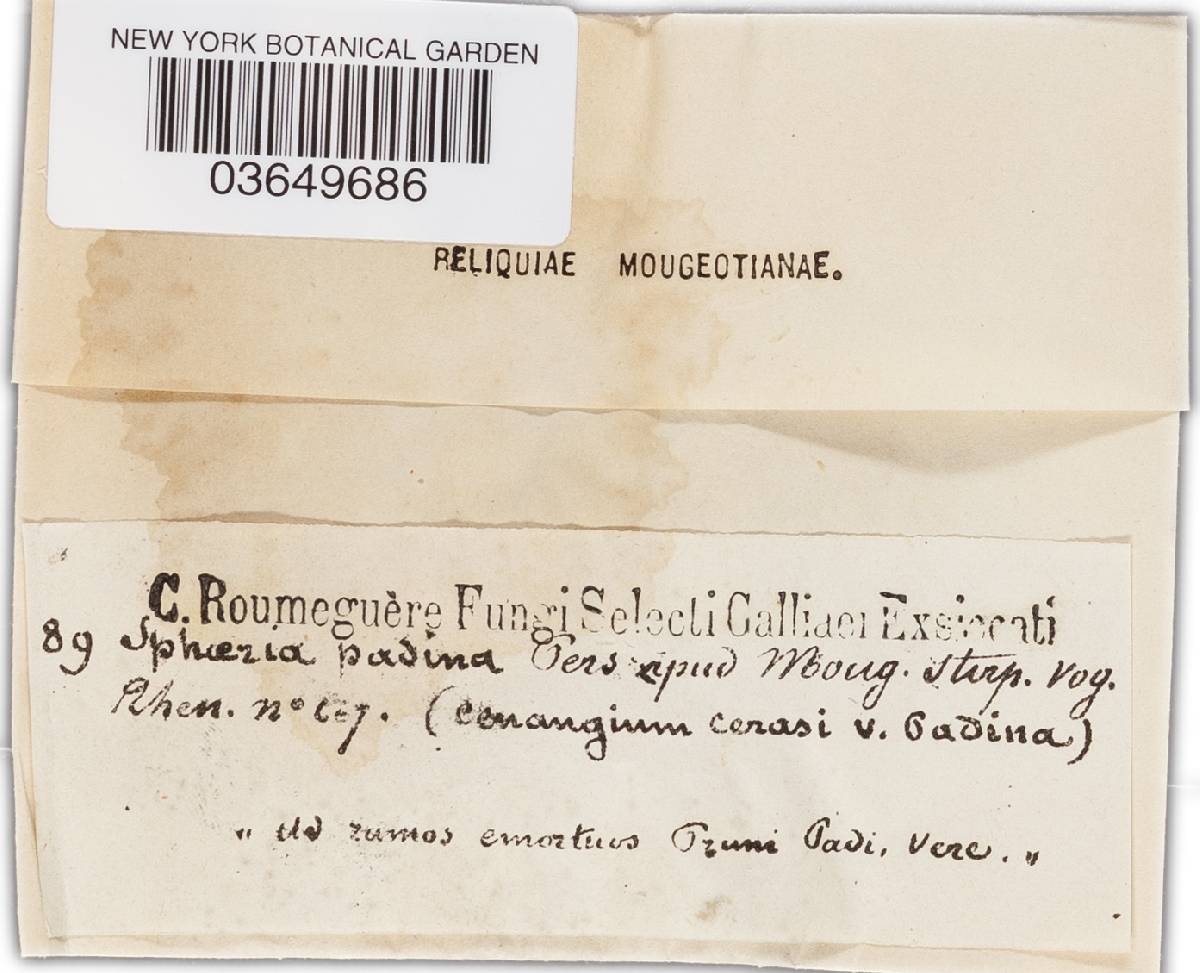 NEW YORK BOTANICAL GARDEN
03649686
RELIQUIAE MOUGEOTIANAE.
C. Roumeguère Fungi Selecti Galliaei Exsiccati
89 Sphæria padina Pers apud Moug. stirp. Vog.
Rhen. nº (Cenangium cerasi v. Padina)
„ Ad ramos emortuos Pruni Padi, Vere. „